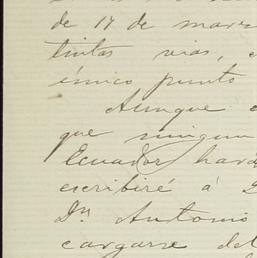 de 17 de marzo
tintas vias,
único punto
Aunque
que ningun
Ecuador, hará
escribiré á
Dn Antonio
cargarse del